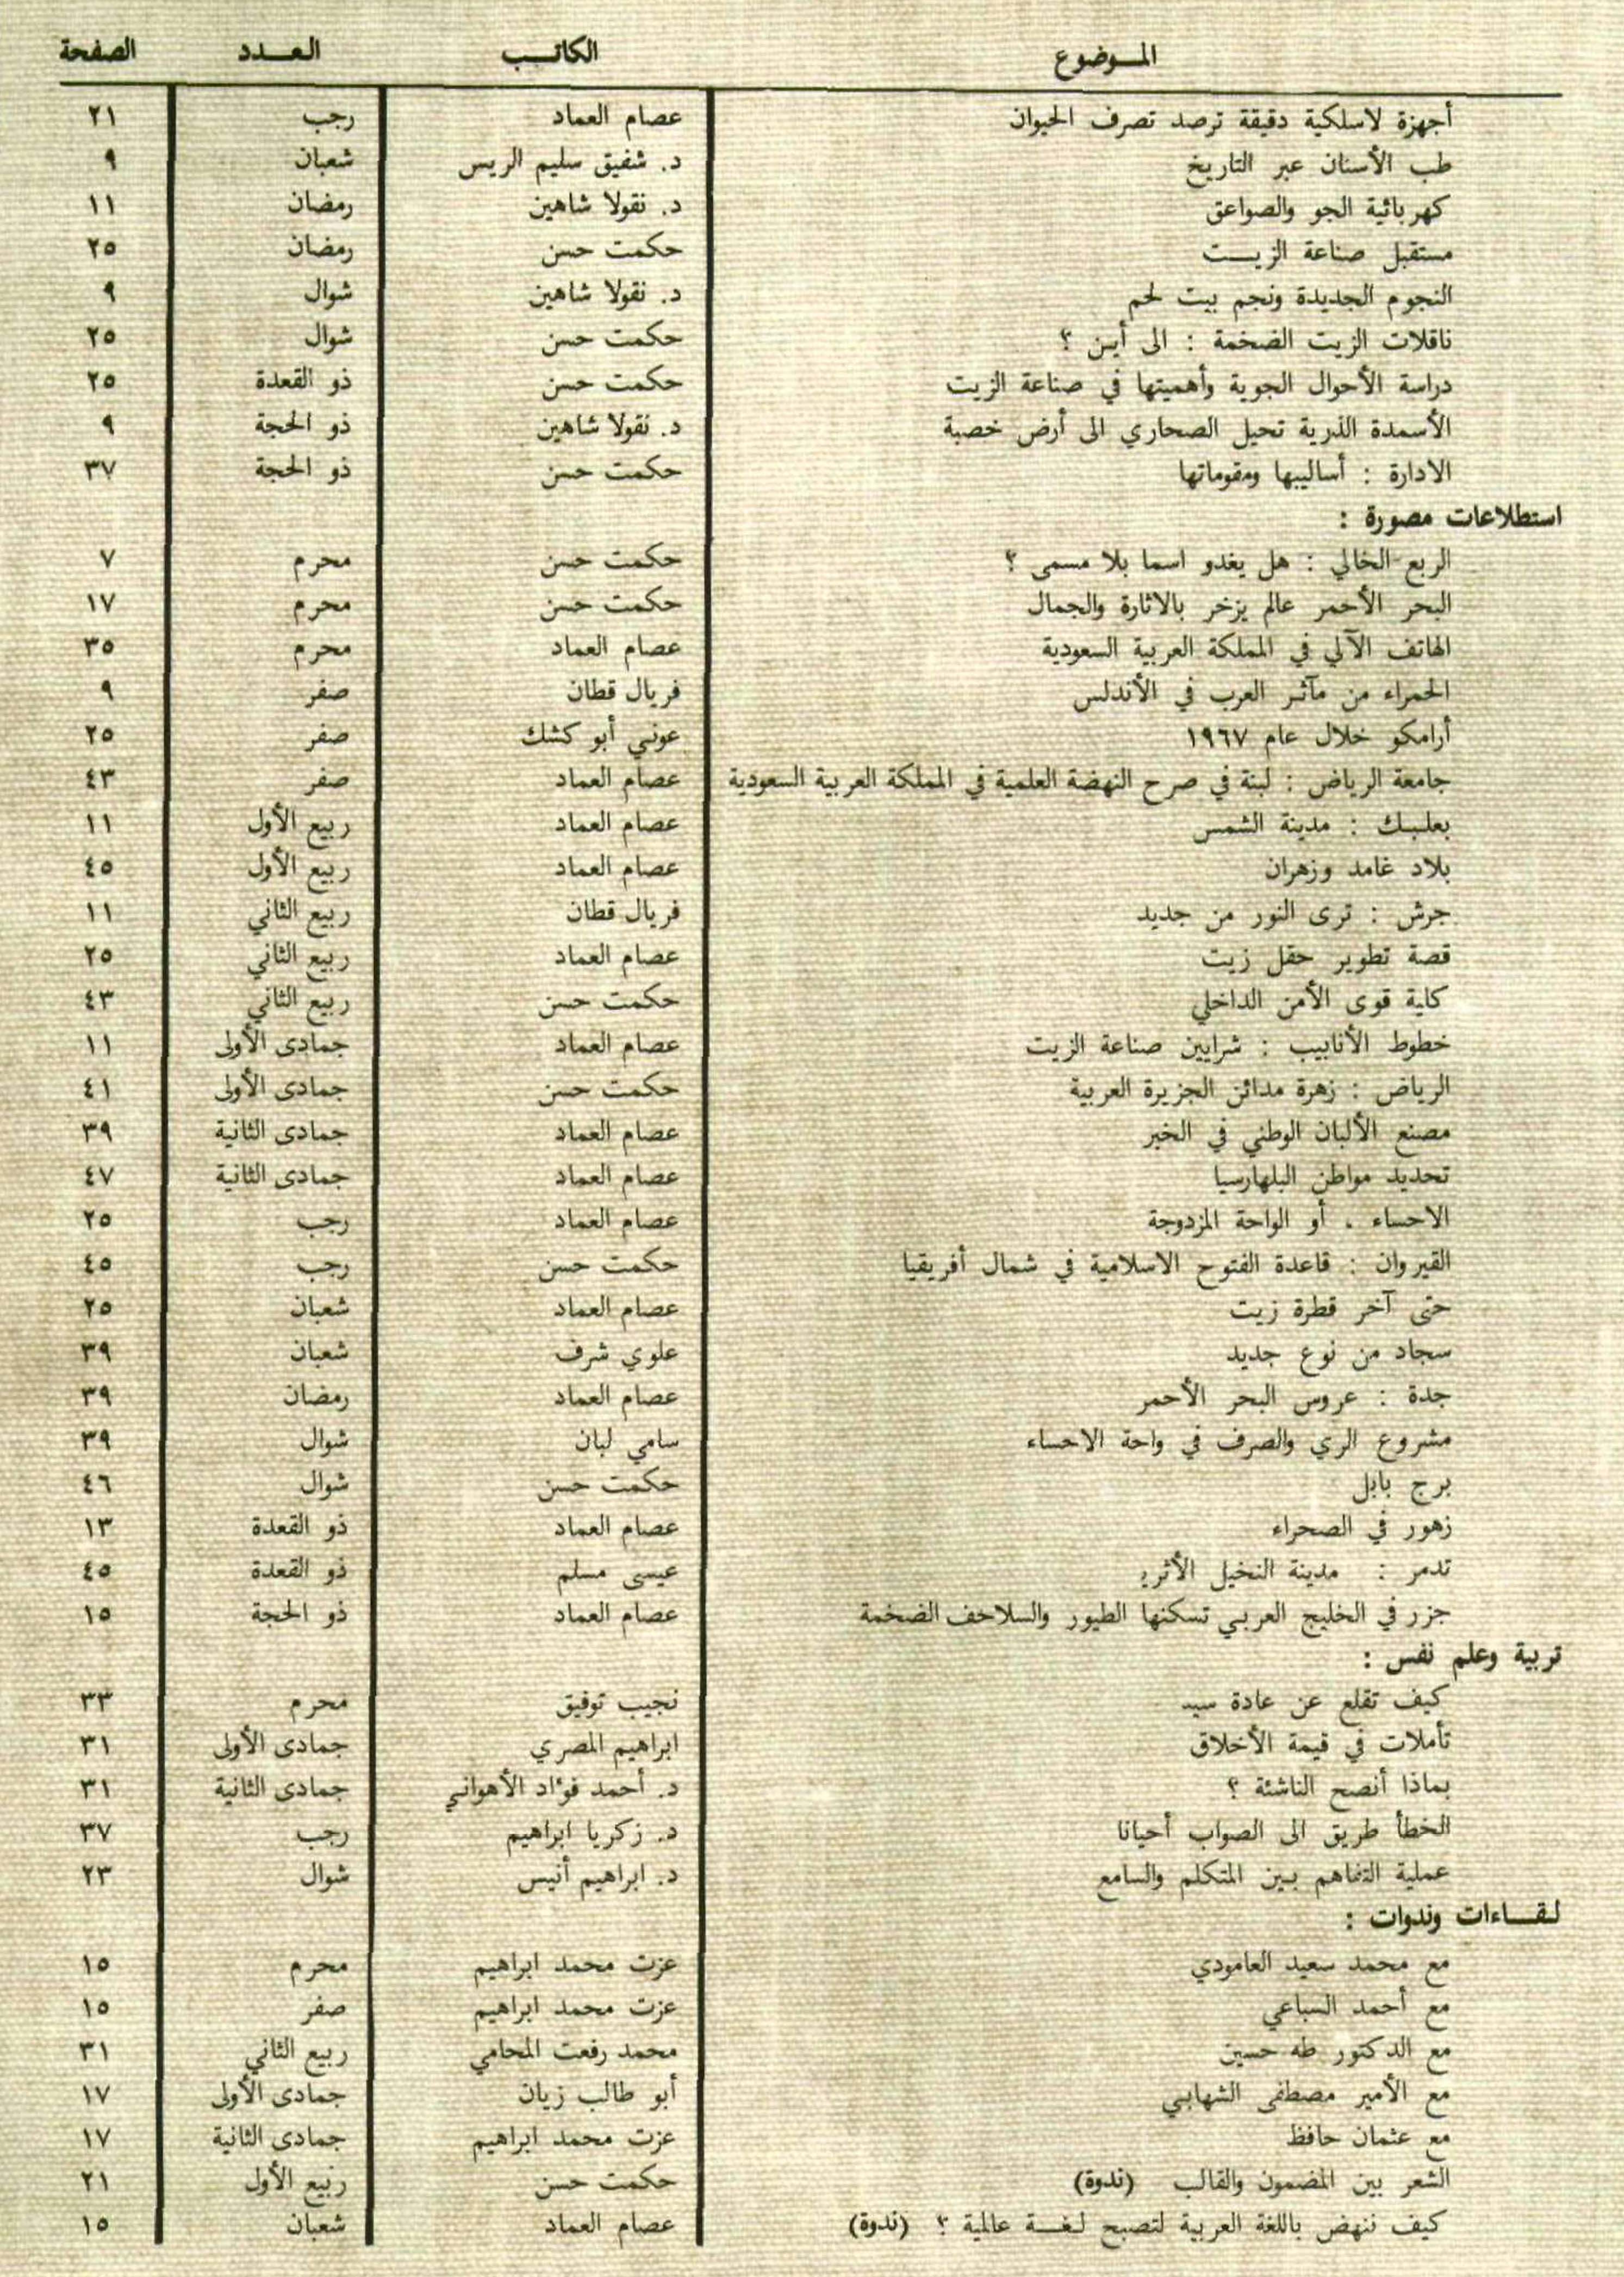 الموضوع الكاتب العدد الصفحة
أجهزة لاسلكية دقيقة ترصد تصرف الحيوان عصام العماد رجب ٢١
طب الأسنان عبر التاريخ د. شفيق سليم الريس شعبان ٩
كهربائية الجو والصواعق د. نقولا شاهين رمضان ١١
مستقبل صناعة الزيت حكمت حسن رمضان ٢٥
النجوم الجديدة ونجم بيت لحم د. نقولا شاهين شوال ٩
ناقلات الزيت الضخمة : الى أين ؟ حكمت حسن شوال ٢٥
دراسة الأحوال الجوية وأهميتها في صناعة الزيت حكمت حسن ذو القعدة ٢٥
الأسمدة الذرية تحيل الصحاري الى أرض خصبة د. نقولا شاهين ذو الحجة ٩
الادارة : أساليبها ومقوماتها حكمت حسن ذو الحجة ٣٧
استطلاعات مصورة :
الربع الخالي : هل يغدو اسما بلا مسمى ؟ حكمت حسن محرم ٧
البحر الأحمر عالم يزخر بالاثارة والجمال حكمت حسن محرم ١٧
الهاتف الآلي في المملكة العربية السعودية عصام العماد محرم ٣٥
الحمراء من مآثر العرب في الأندلس فريال قطان صفر ٩
أرامكو خلال عام ١٩٦٧ عوني أبو كشك صفر ٢٥
جامعة الرياض : لبنة في صرح النهضة العلمية في المملكة العربية السعودية عصام العماد صفر ٤٣
بعلبك : مدينة الشمس عصام العماد ربيع الأول ١١
بلاد غامد وزهران عصام العماد ربيع الأول ٤٥
جرش : ترى النور من جديد فريال قطان ربيع الثاني ١١
قصة تطوير حقل زيت عصام العماد ربيع الثاني ٢٥
كلية قوى الأمن الداخلي حكمت حسن ربيع الثاني ٤٣
خطوط الأنابيب : شرايين صناعة الزيت عصام العماد جمادى الأولى ١١
الرياض : زهرة مدائن الجزيرة العربية حكمت حسن جمادى الأولى ٤١
مصنع الألبان الوطني في الخبر عصام العماد جمادى الثانية ٣٩
تحديد مواطن البلهارسيا عصام العماد جمادى الثانية ٤٧
الاحساء ، أو الواحة المزدوجة عصام العماد رجب ٢٥
القيروان : قاعدة الفتوح الاسلامية في شمال أفريقيا حكمت حسن رجب ٤٥
حتى آخر قطرة زيت عصام العماد شعبان ٢٥
سجاد من نوع جديد علوي شرف شعبان ٣٩
جدة : عروس البحر الأحمر عصام العماد رمضان ٣٩
مشروع الري والصرف في واحة الاحساء سامي لبان شوال ٣٩
برج بابل حكمت حسن شوال ٤٦
زهور في الصحراء عصام العماد ذو القعدة ١٣
تدمر : مدينة النخيل الأثري عيسى مسلم ذو القعدة ٤٥
جزر في الخليج العربي تسكنها الطيور والسلاحف الضخمة عصام العماد ذو الحجة ١٥
تربية وعلم نفس :
كيف تقلع عن عادة نجيب توفيق محرم ٣٣
تأملات في قيمة الأخلاق ابراهيم المصري جمادى الأولى ٣١
بماذا أنصح الناشئة ؟ د. أحمد فؤاد الأهواني جمادى الثانية ٣١
الخطأ طريق الى الصواب أحيانا د. زكريا ابراهيم رجب ٣٧
عملية التفاهم بين المتكلم والسامع د. ابراهيم أنيس شوال ٢٣
لقاءات وندوات :
مع محمد سعيد العامودي عزت محمد ابراهيم محرم ١٥
مع أحمد السباعي عزت محمد ابراهيم صفر ١٥
مع الدكتور طه حسين محمد رفعت المحامي ربيع الثاني ٣١
مع الأمير مصطفى الشهابي أبو طالب زيان جمادى الأولى ١٧
مع عثمان حافظ عزت محمد ابراهيم جمادى الثانية ١٧
الشعر بين المضمون والقالب (ندوة) حكمت حسن ربيع الأول ٢١
كيف ننهض باللغة العربية لتصبح لغة عالمية ؟ (ندوة) عصام العماد شعبان ١٥